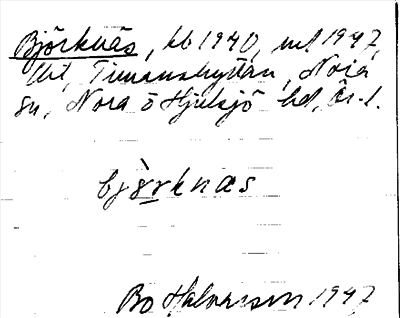 Björknäs, kb 1940, ml 1947,
Timanshyttan, Nora
sn, Nora o Hjulsjö hd, Ör. l.
björknas
Bo Halvarsson 1947